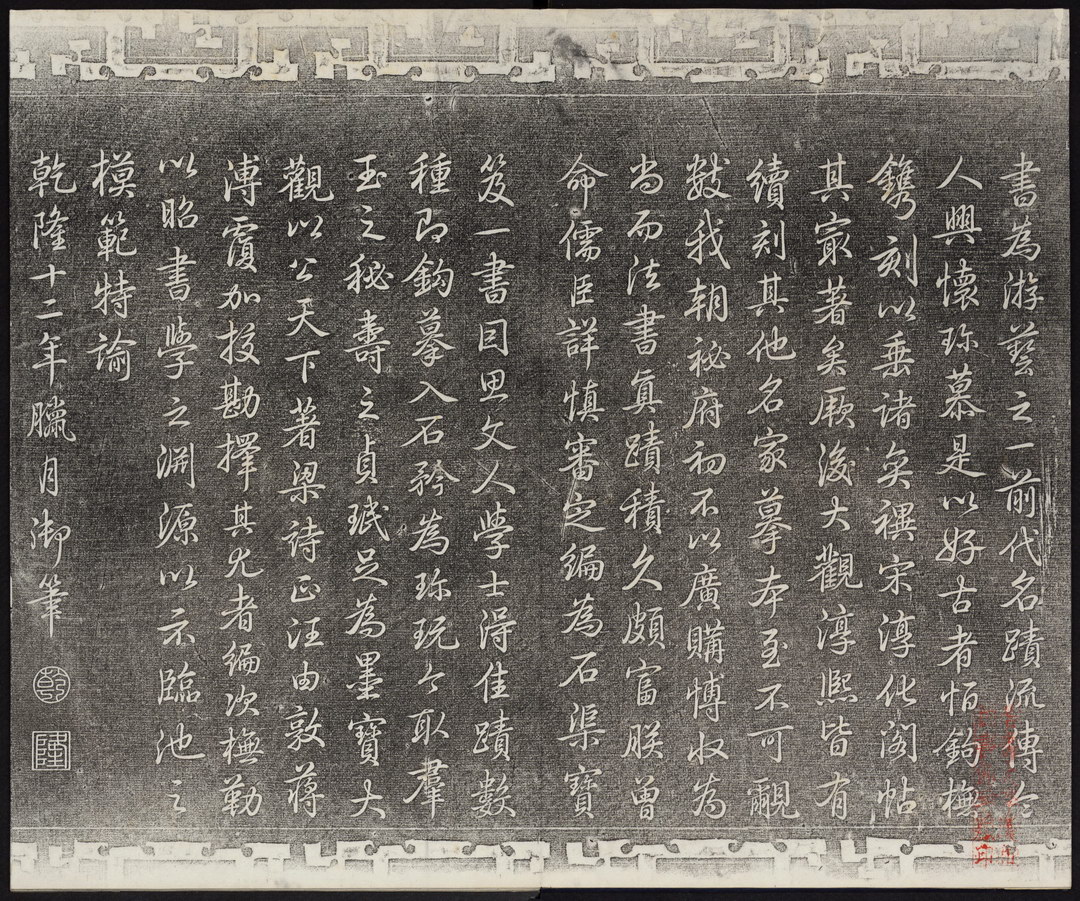 書為游藝之一前代名蹟流傳令
人興懷珎慕是以好古者恒鈎橅
鐫刻以垂諸奕禩宋淳化閣帖
其㝡著矣厥後大觀淳熙皆有
續刻其他名家摹本至不可覼
數我朝秘府初不以廣購愽收為
尚而法書真蹟積久頗富朕曾
命儒臣詳慎審定編為石渠寶
笈一書因思文人學士得佳蹟數
種即鈎摹入石矜為珎玩今取羣
玉之秘壽之貞珉足為墨寶大
觀以公天下著梁詩正汪由敦蔣
溥覆加挍勘擇其尤者編次橅勒
以昭書學之淵源以示臨池之
模範特諭
乾隆十二年臘月御筆
乾
隆